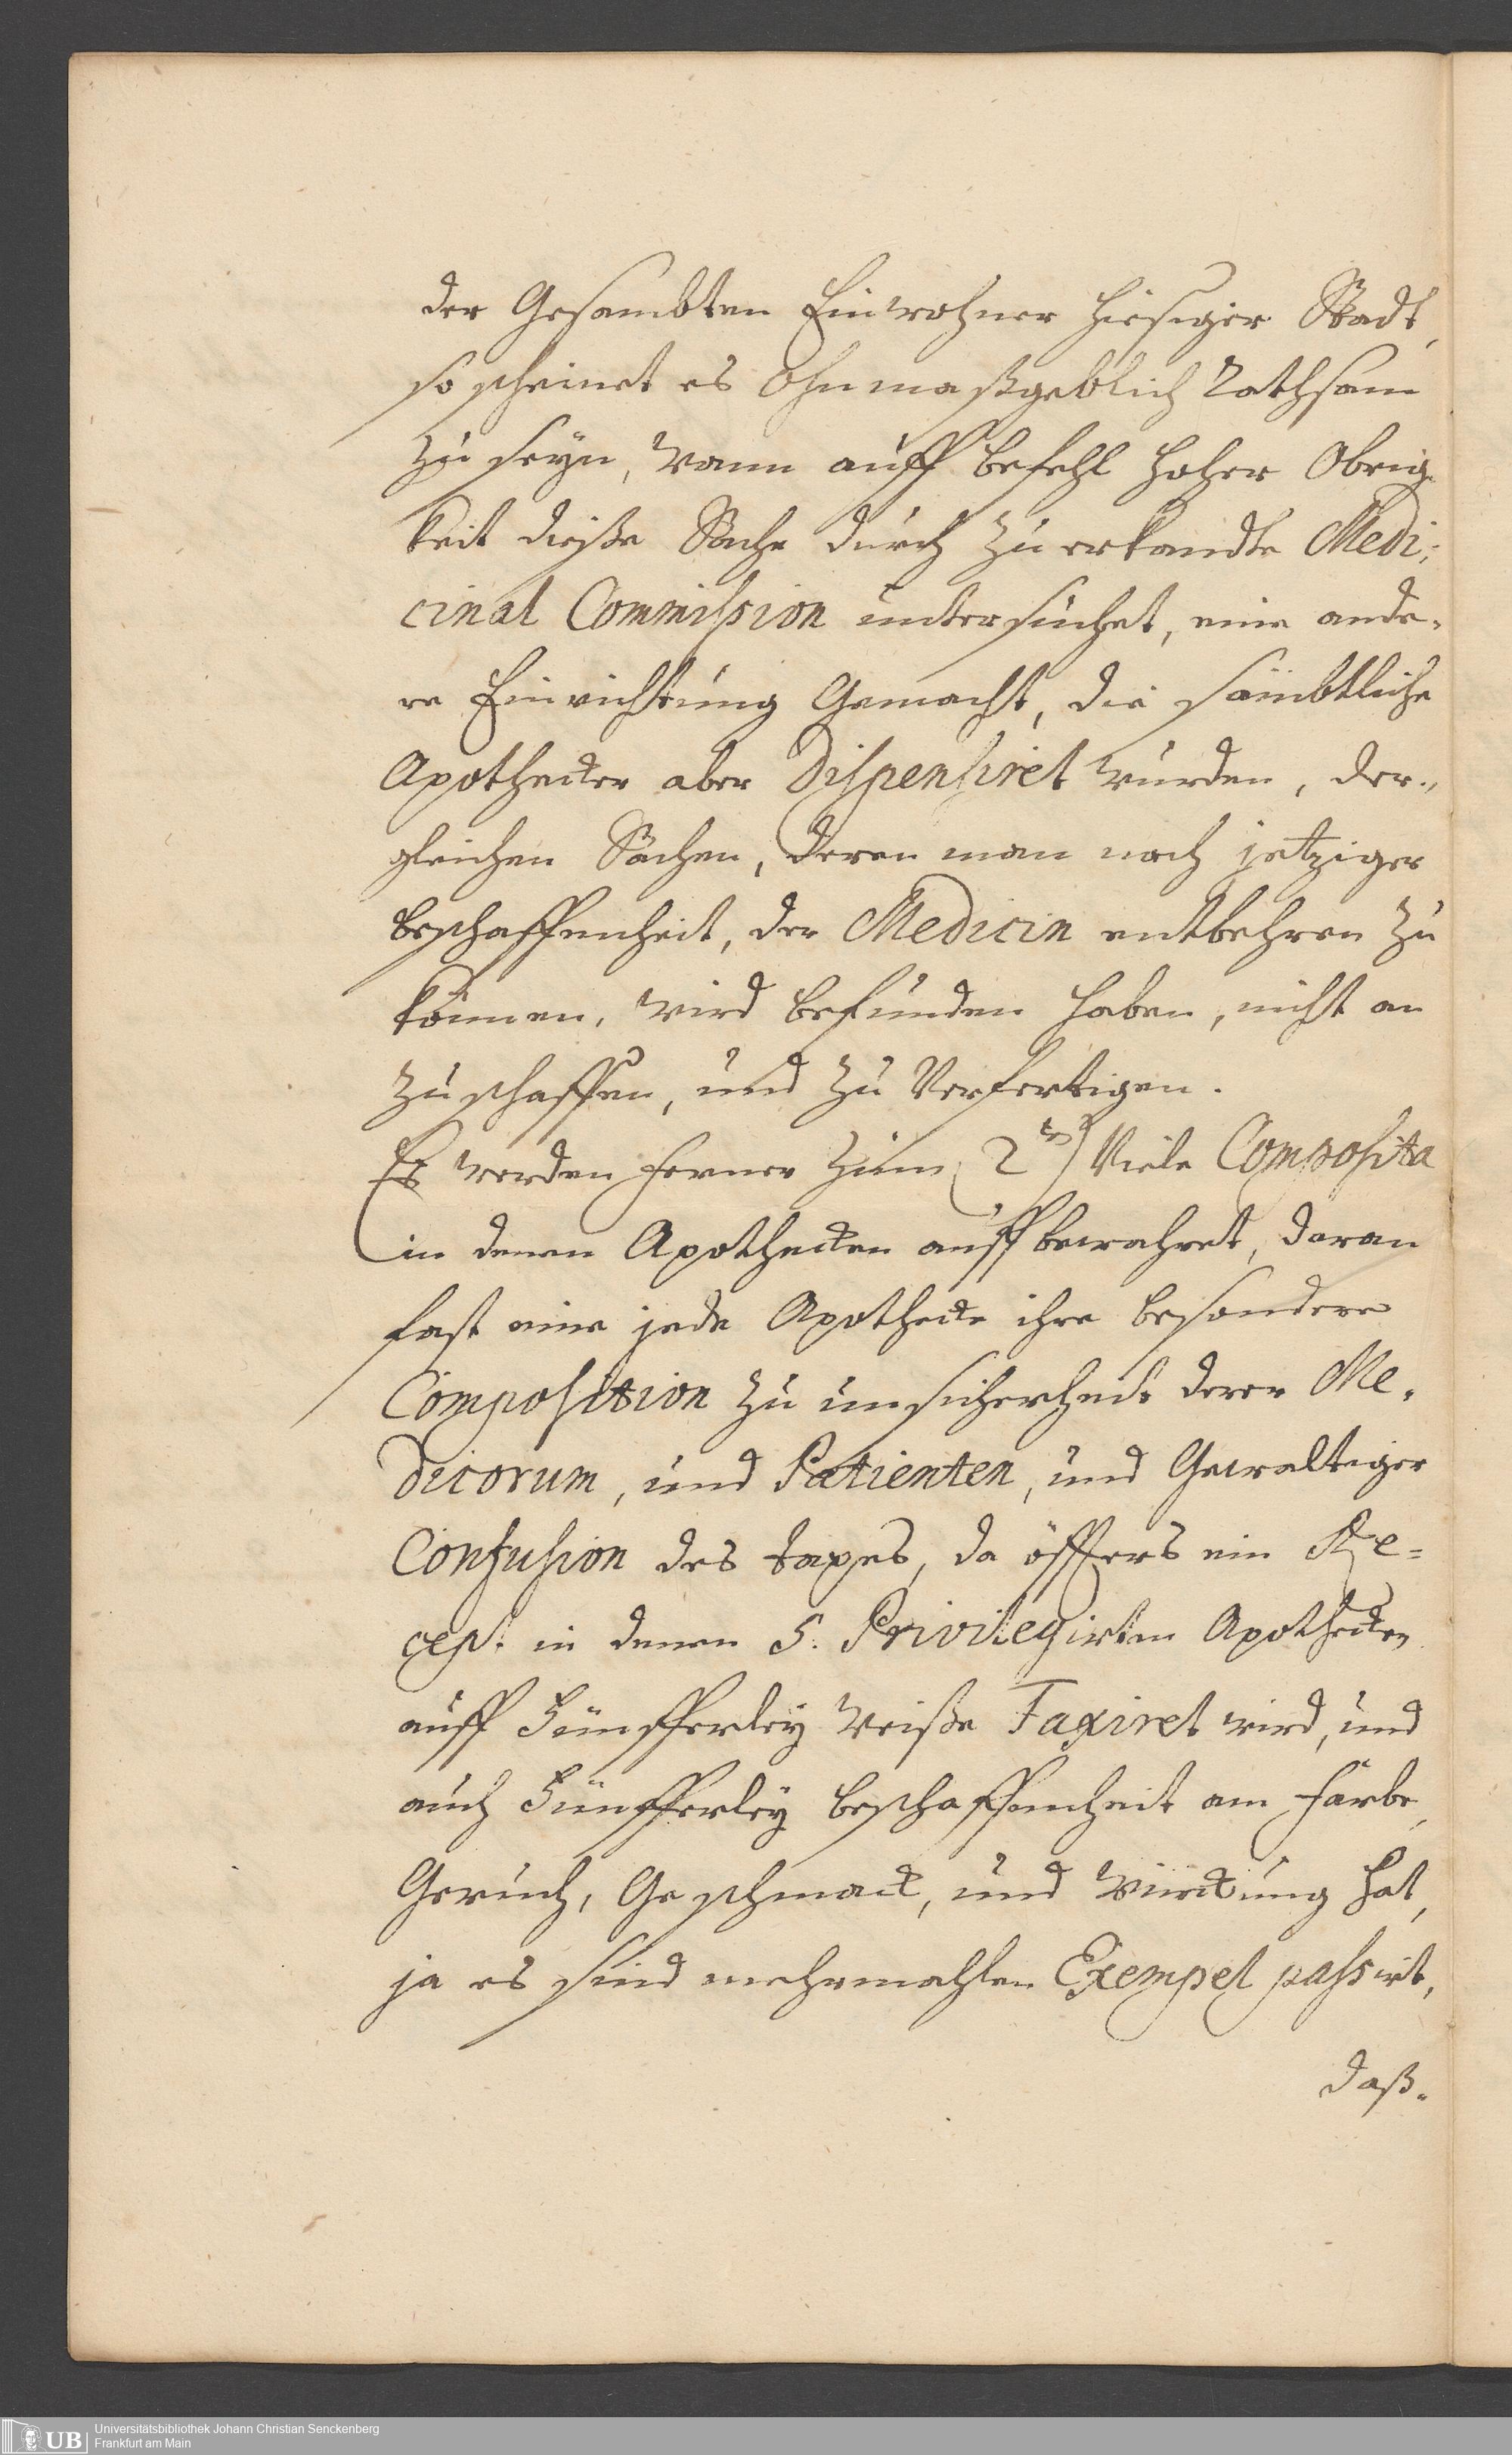 der Gesambten Einwohner hiesiger Stadt,
so scheinet es Ohnmaßgeblich Rathsam
zu seyn, wann auff befehl hoher Obrig-
keit dieße Sache durch zu erkandte Medi-
cinal Commission untersuchet, eine ande-
re Einrichtung Gemacht, die sämbtliche
Apothecker aber Dispensiret wurden, der-
gleichen Sachen, deren man nach jetziger
beschaffenheit, der Medicin entbehren zu
können, wird befunden haben, nicht an
zuschaffen, und zu Verfertigen.
Es werden ferner zum (2ten) Viele Composita
in denen Apothecken auffbewahret, daran
fast eine jede Apothecke ihre besondere
Composition zu unsicherheit derer Me-
dicorum, und Patienten, und Gewaltiger
Confusion des taxes, da öffters ein Re-
cept in denen 5. Privilegirten Apothecken
auff Fünfferley Weiße Taxiret wird, und
auch Fünfferley beschaffenheit am färbe,
Geruch, Geschmack, und Würckung hat,
ja es sind mehrmahlen Exempel passirt,
daß.
UB
Universitätsbibliothek Johann Christian Senckenberg
Frankfurt am Main